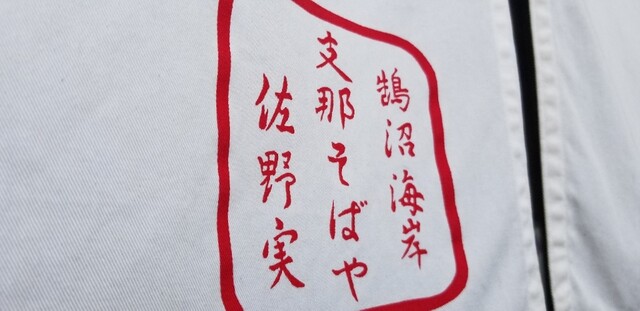 鵠沼海岸
支那そばや
佐野実